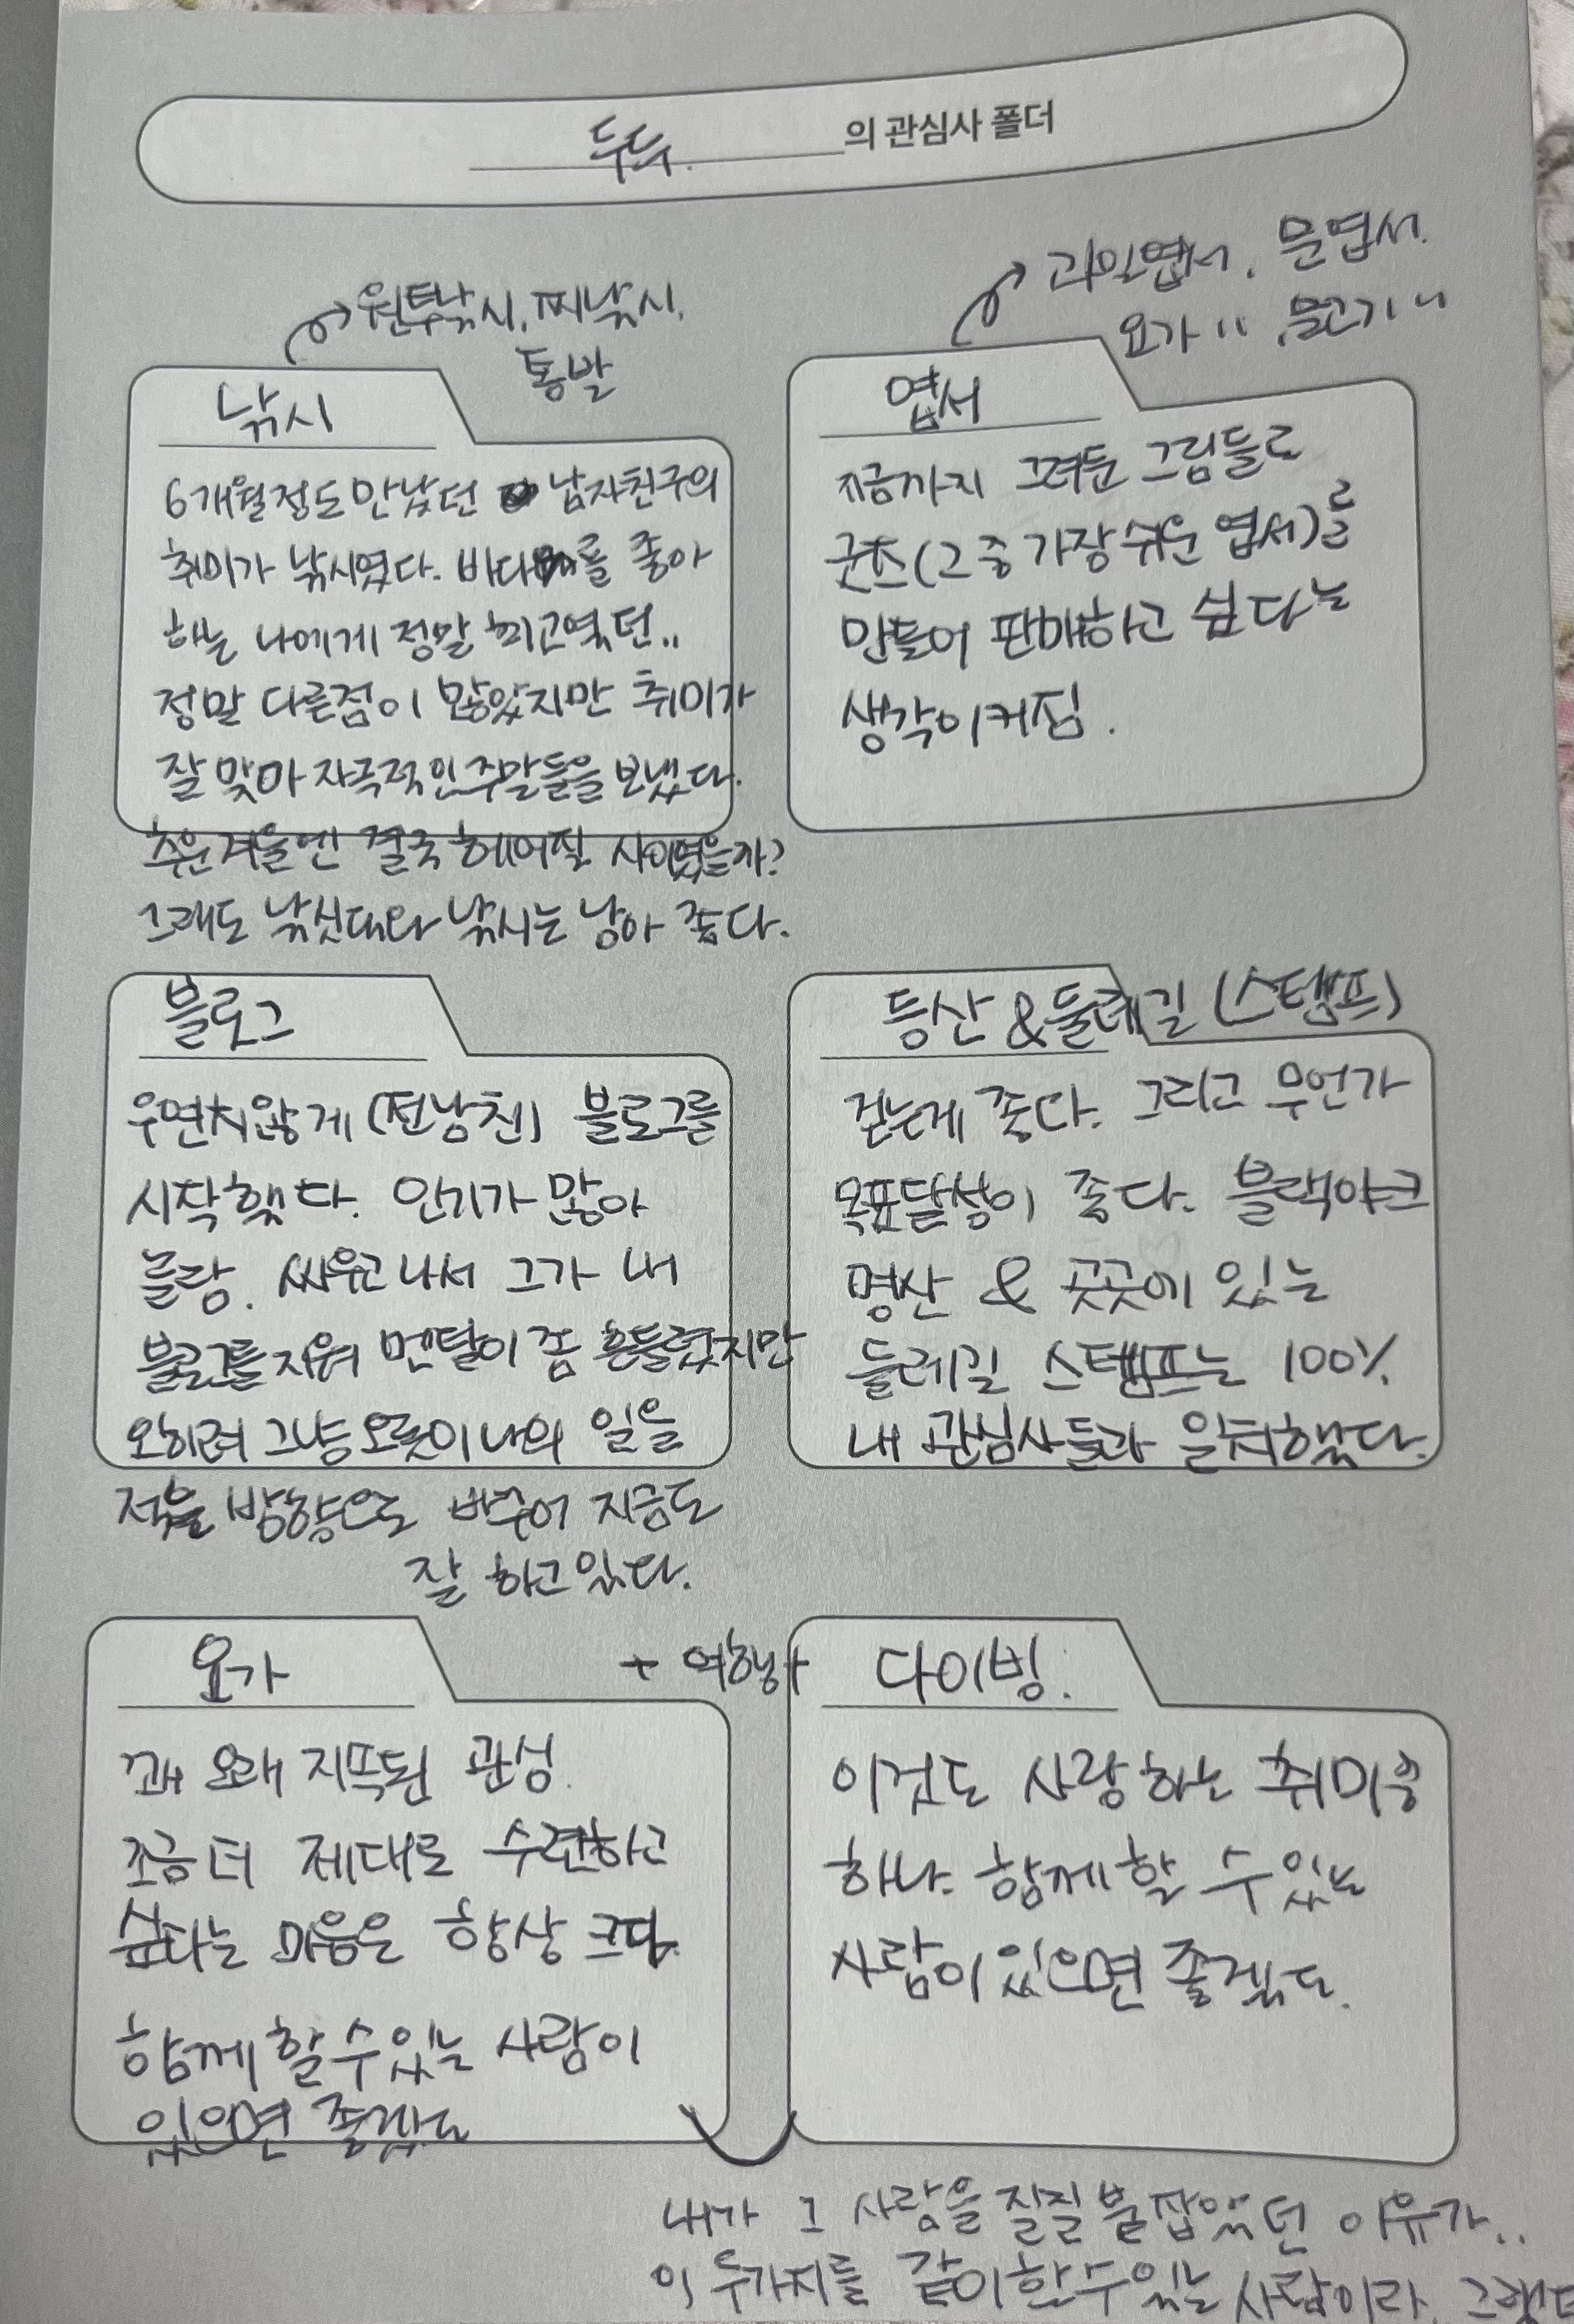 두두. 의 관심사 폴더
원투낚시, 찌낚시,
통발
낚시
6개월정도 만났던 남자친구의
취미가 낚시였다. 바다를 좋아
하는 나에게 정말 최고였던..
정말 다른점이 많았지만 취미가
잘 맞아 자극적인 주말들을 보냈다.
추운 겨울엔 결국 헤어질 사이였을까?
그래도 낚싯대와 낚시는 남아 좋다.
과일엽서, 문엽서.
요가 〃, 물고기 〃
엽서
지금까지 그려둔 그림들로
굿즈(그 중 가장 쉬운 엽서)를
만들어 판매하고 싶다는
생각이 커짐.
블로그
우연치않게 (전남친) 블로그를
시작했다. 인기가 많아
놀람. 싸우고 나서 그가 내
블로그를 지워 멘탈이 좀 흔들렸지만
오히려 그냥 오롯이 나의 일을
적을 방향으로 바꾸어 지금도
잘 하고있다.
등산 & 둘레길 (스탬프)
걷는게 좋다. 그리고 무언가
목표달성이 좋다. 블랙야크
명산 & 곳곳에 있는
둘레길 스탬프는 100%
내 관심사들과 일치했다.
요가
꽤 오래 지속된 관심.
조금 더 제대로 수련하고
싶다는 마음은 항상 크다.
함께 할 수 있는 사람이
있으면 좋겠다
+ 여행
다이빙.
이것도 사랑하는 취미중
하나. 함께 할 수 있는
사람이 있으면 좋겠다.
내가 그 사람을 질질 붙잡았던 이유가..
이 두가지를 같이 할 수 있는 사람이라